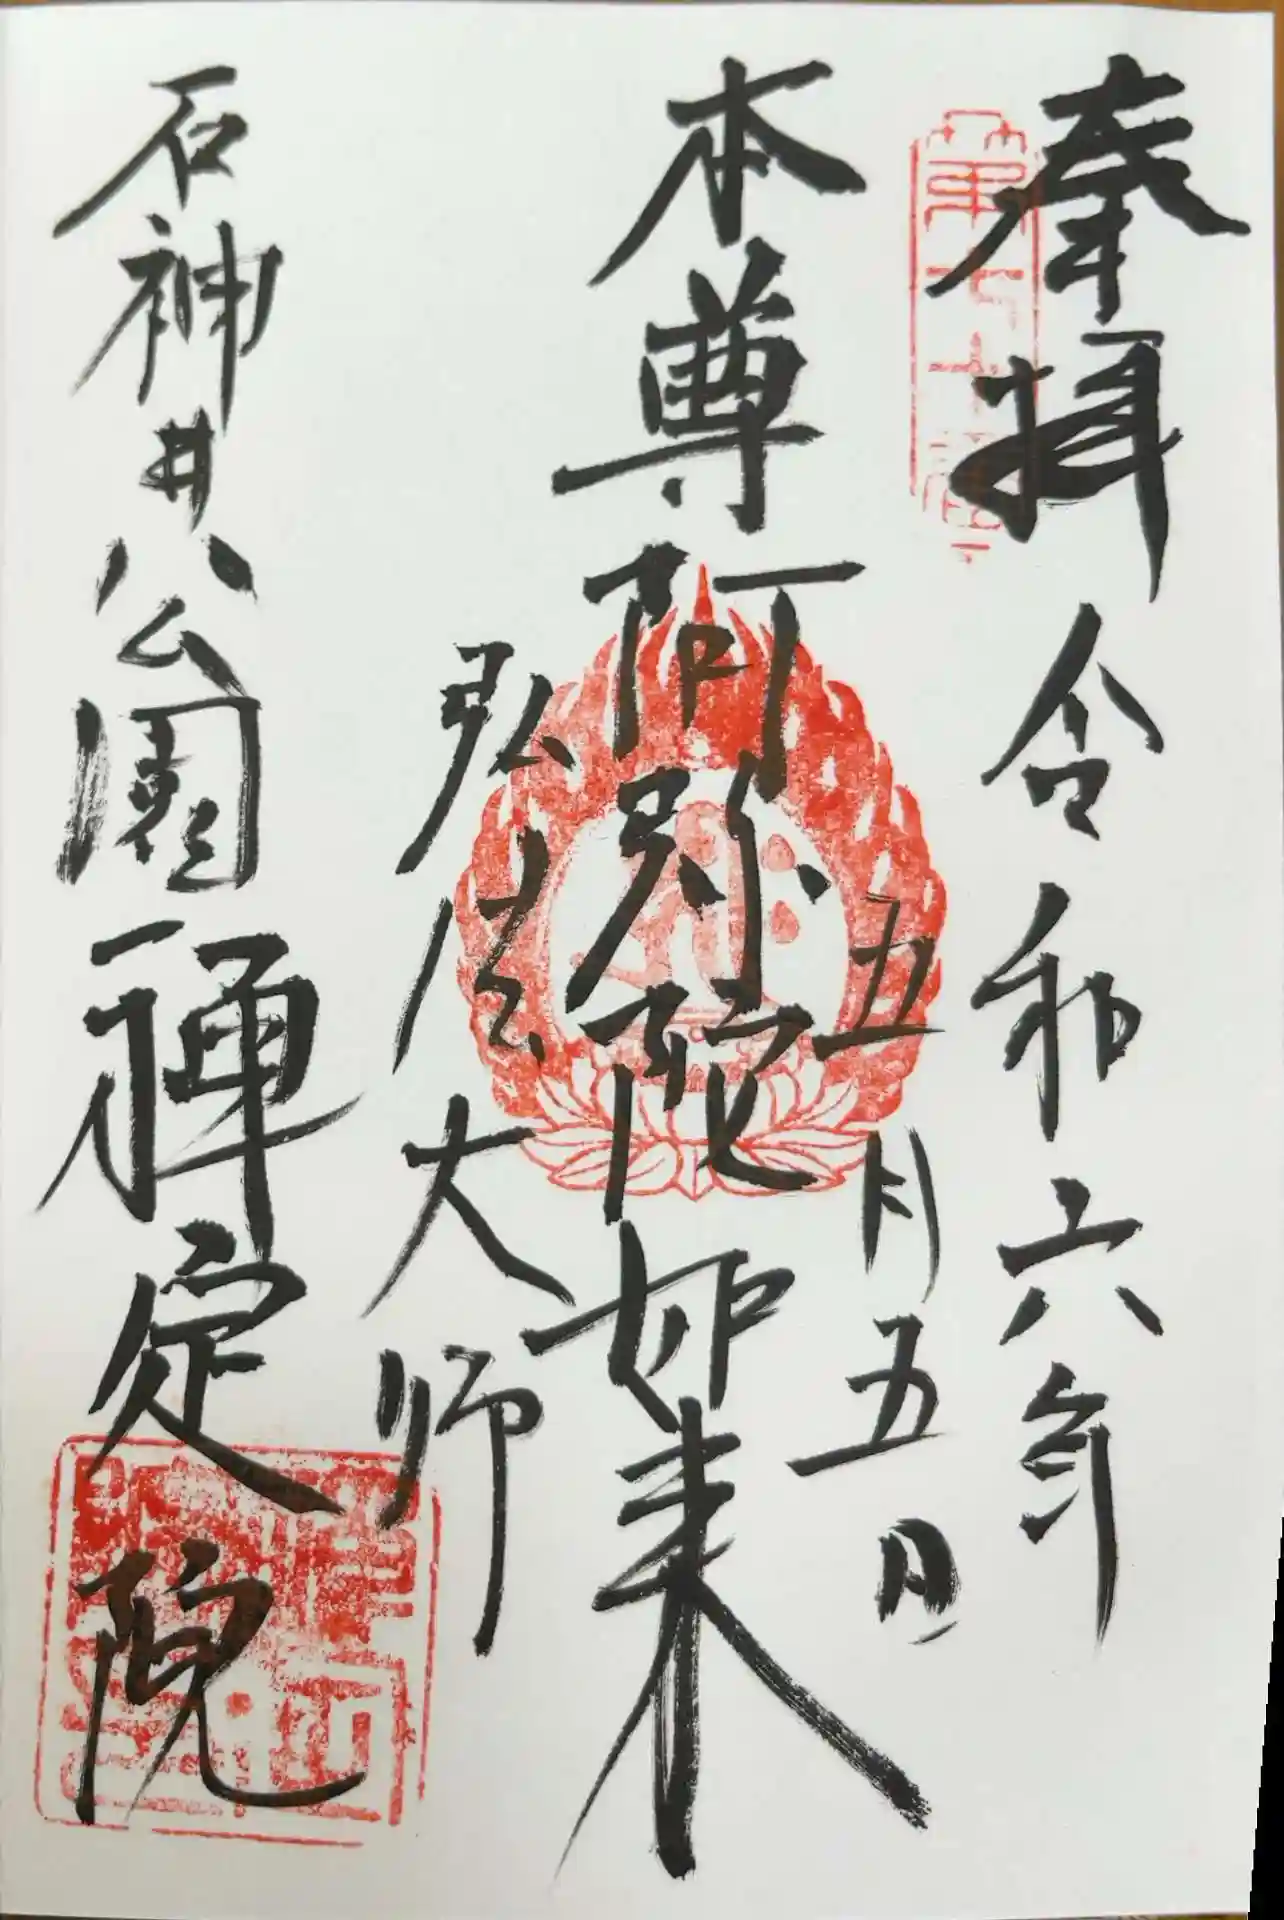 奉拝
令和六年
五月五日
本尊阿弥陀如来
弘法大師
石神井公園禅定院